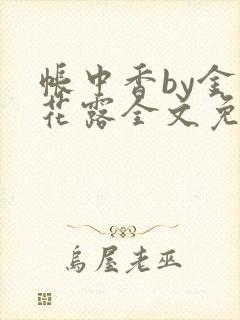 帐中香by金
花露全文免
乌屋老巫